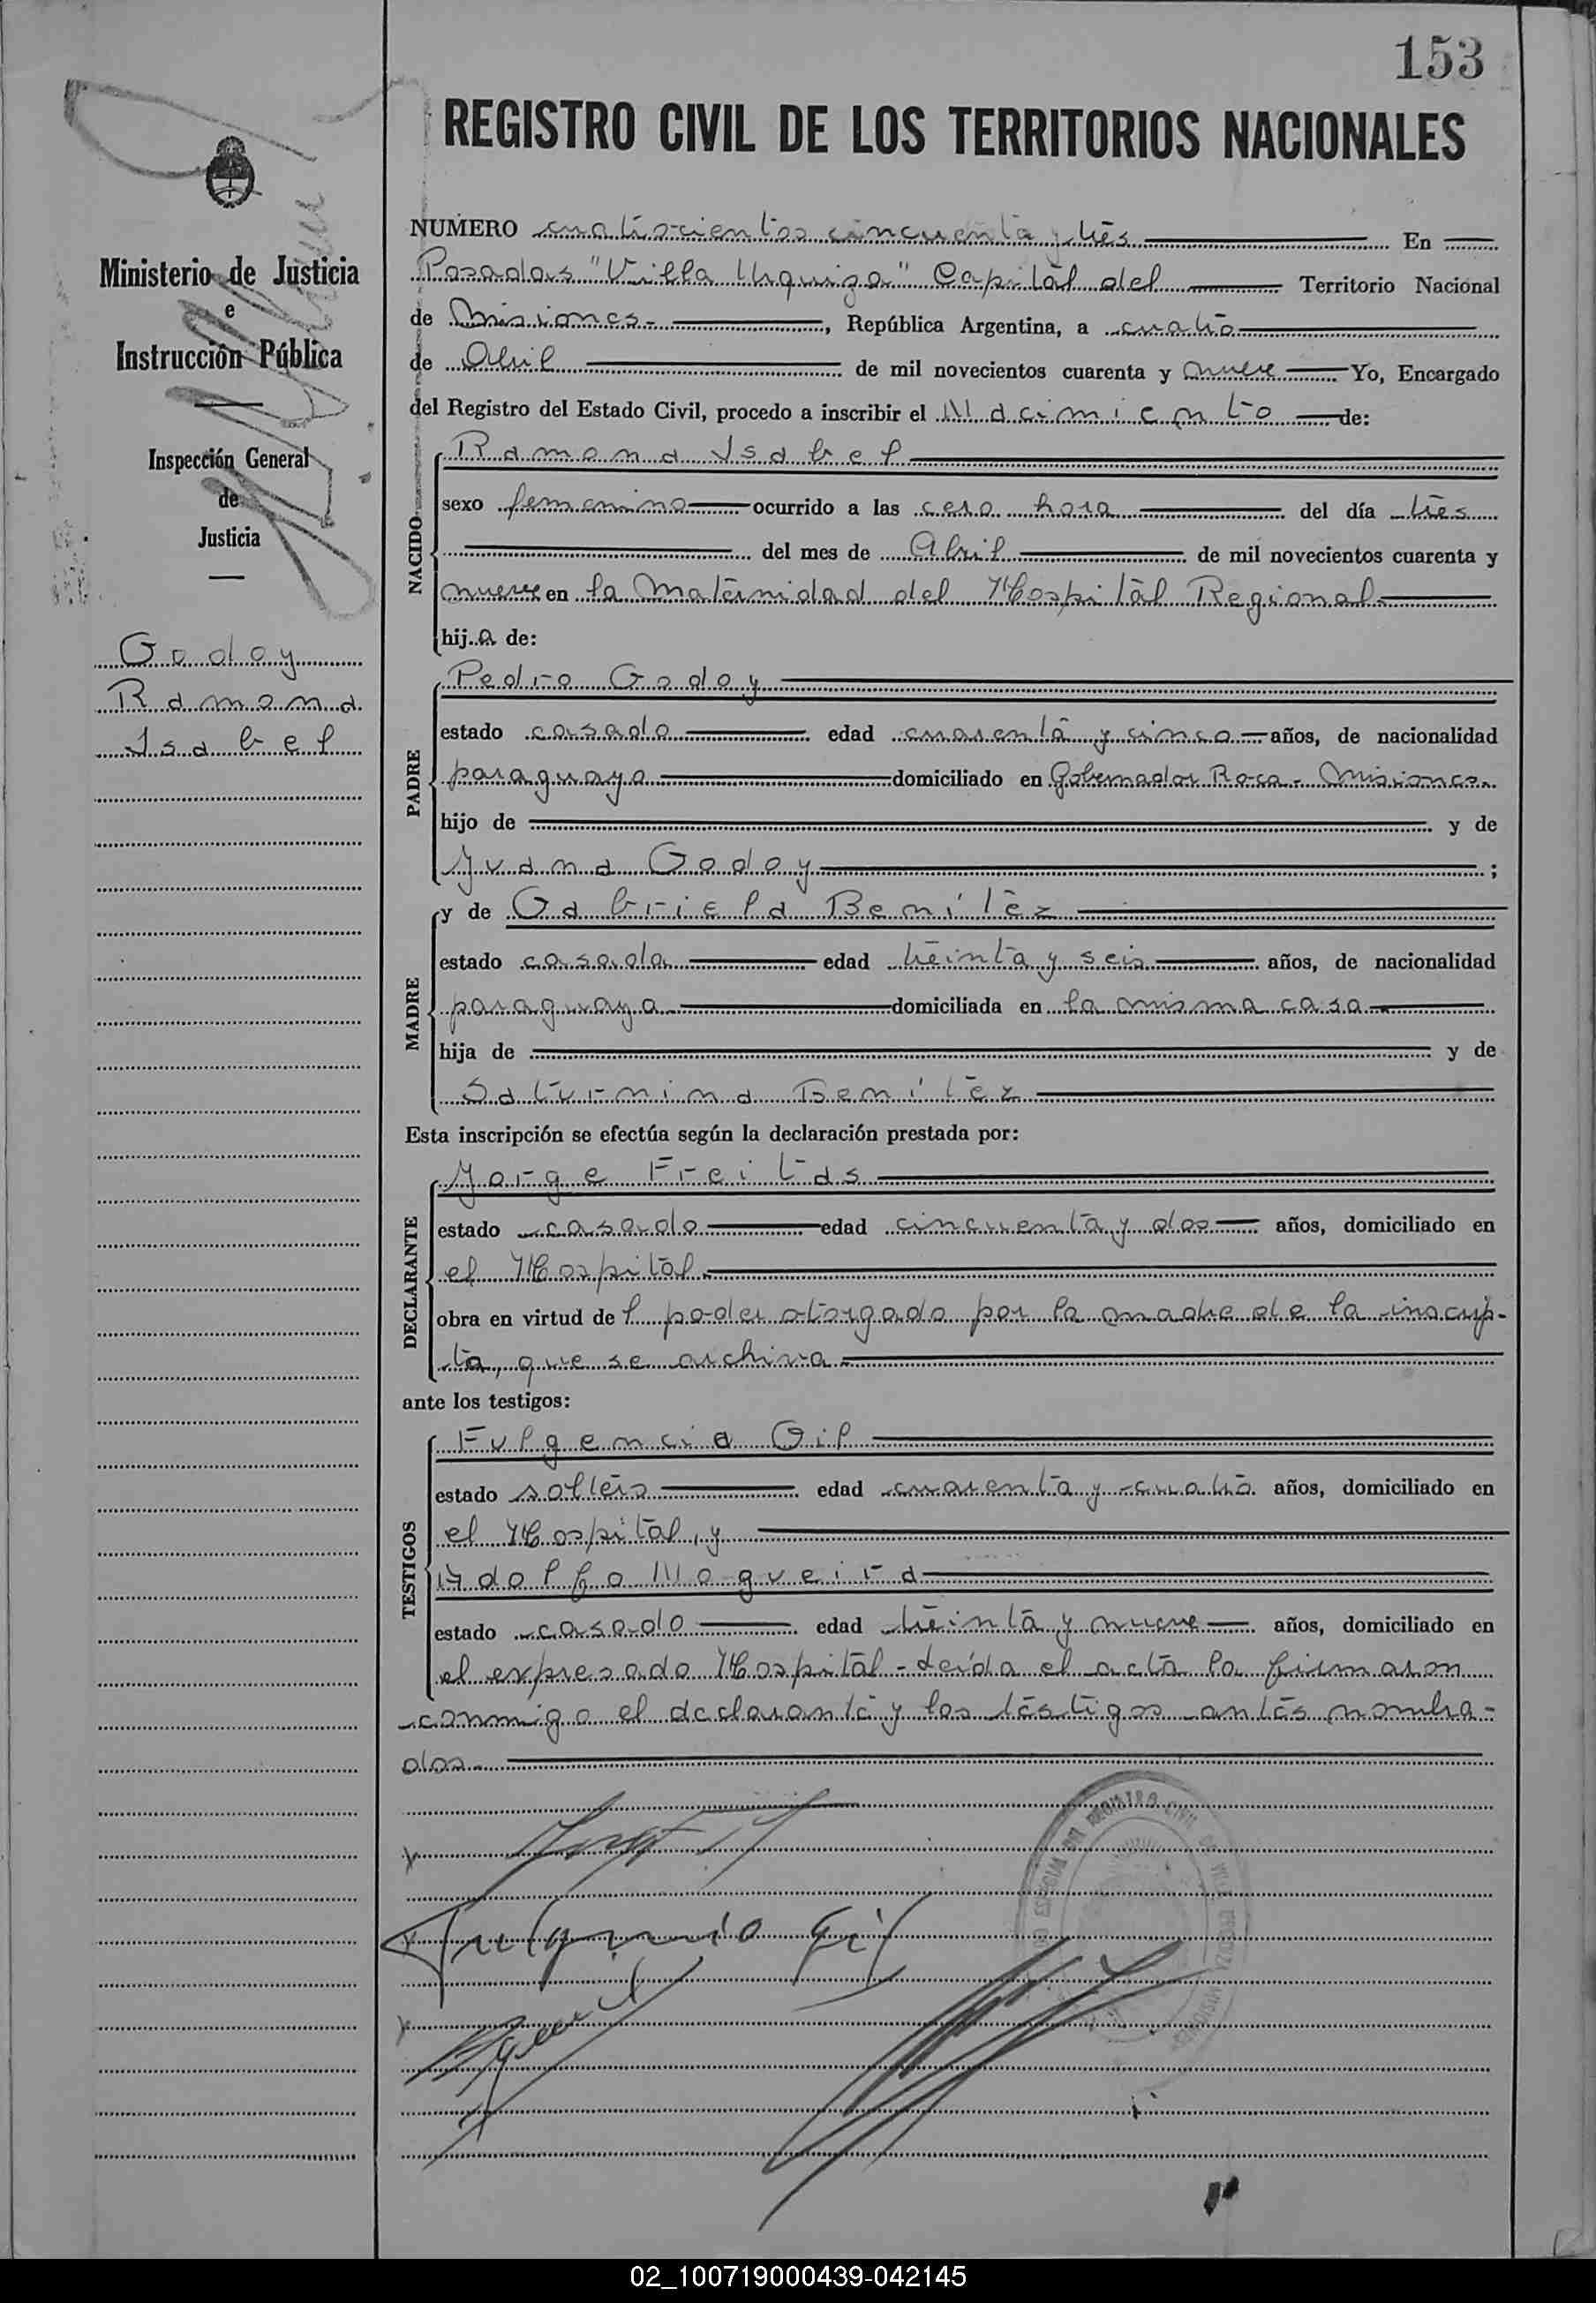 153
REGISTRO CIVIL DE LOS TERRITORIOS NACIONALES
Ministerio de Justicia
e
Instrucción Pública
Inspección General
de
Justicia
Godoy
Ramona
Isabel
NUMERO cuatrocientos cincuenta y tres En
Posadas "Villa Urquiza" Capital del Territorio Nacional
de Misiones- , República Argentina, a cuatro
de Abril de mil novecientos cuarenta y nueve Yo, Encargado
del Registro del Estado Civil, procedo a inscribir el Nacimiento de:
NACIDO
Ramona Isabel
sexo femenino ocurrido a las cero hora del día tres
del mes de Abril de mil novecientos cuarenta y
nueve en la Maternidad del Hospital Regional-
hija de:
PADRE
Pedro Godoy
estado casado edad cuarenta y cinco años, de nacionalidad
paraguaya domiciliado en Gobernador Roca- Misiones.
hijo de y de
Juana Godoy ;
MADRE
y de Gabriela Benítez
estado casada edad treinta y seis años, de nacionalidad
paraguaya domiciliada en la misma casa
hija de y de
Saturnina Benítez
Esta inscripción se efectúa según la declaración prestada por:
DECLARANTE
Jorge Freitas
estado casado edad cincuenta y dos años, domiciliado en
el Hospital-
obra en virtud del poder otorgado por la madre de la inscrip-
ta, que se archiva-
ante los testigos:
TESTIGOS
Fulgencio Gil
estado soltero edad cuarenta y cuatro años, domiciliado en
el Hospital, y
Adolfo Nogueira
estado casado edad treinta y nueve años, domiciliado en
el expresado Hospital- Leída el acta la firmaron
conmigo el declarante y los testigos antes nombra-
dos-
Fulgencio Gil
REGISTRO CIVIL
02_100719000439-042145